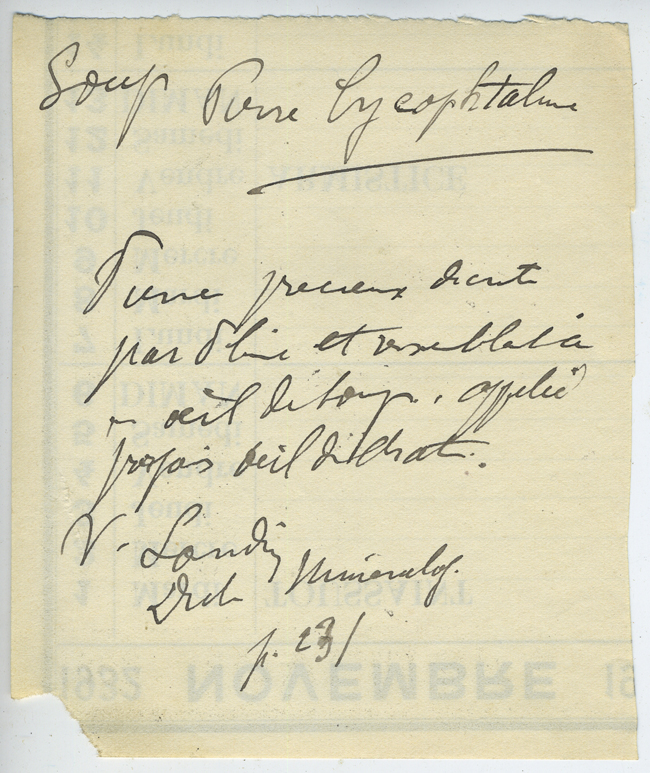 Loup Pierre lycophtalme
Pierre precieux decrite
par Pline et ressemblant à
un œil de loup. appelé
parfois œil de chat.
V. Landrin
Dict. Mineralog.
p. 231